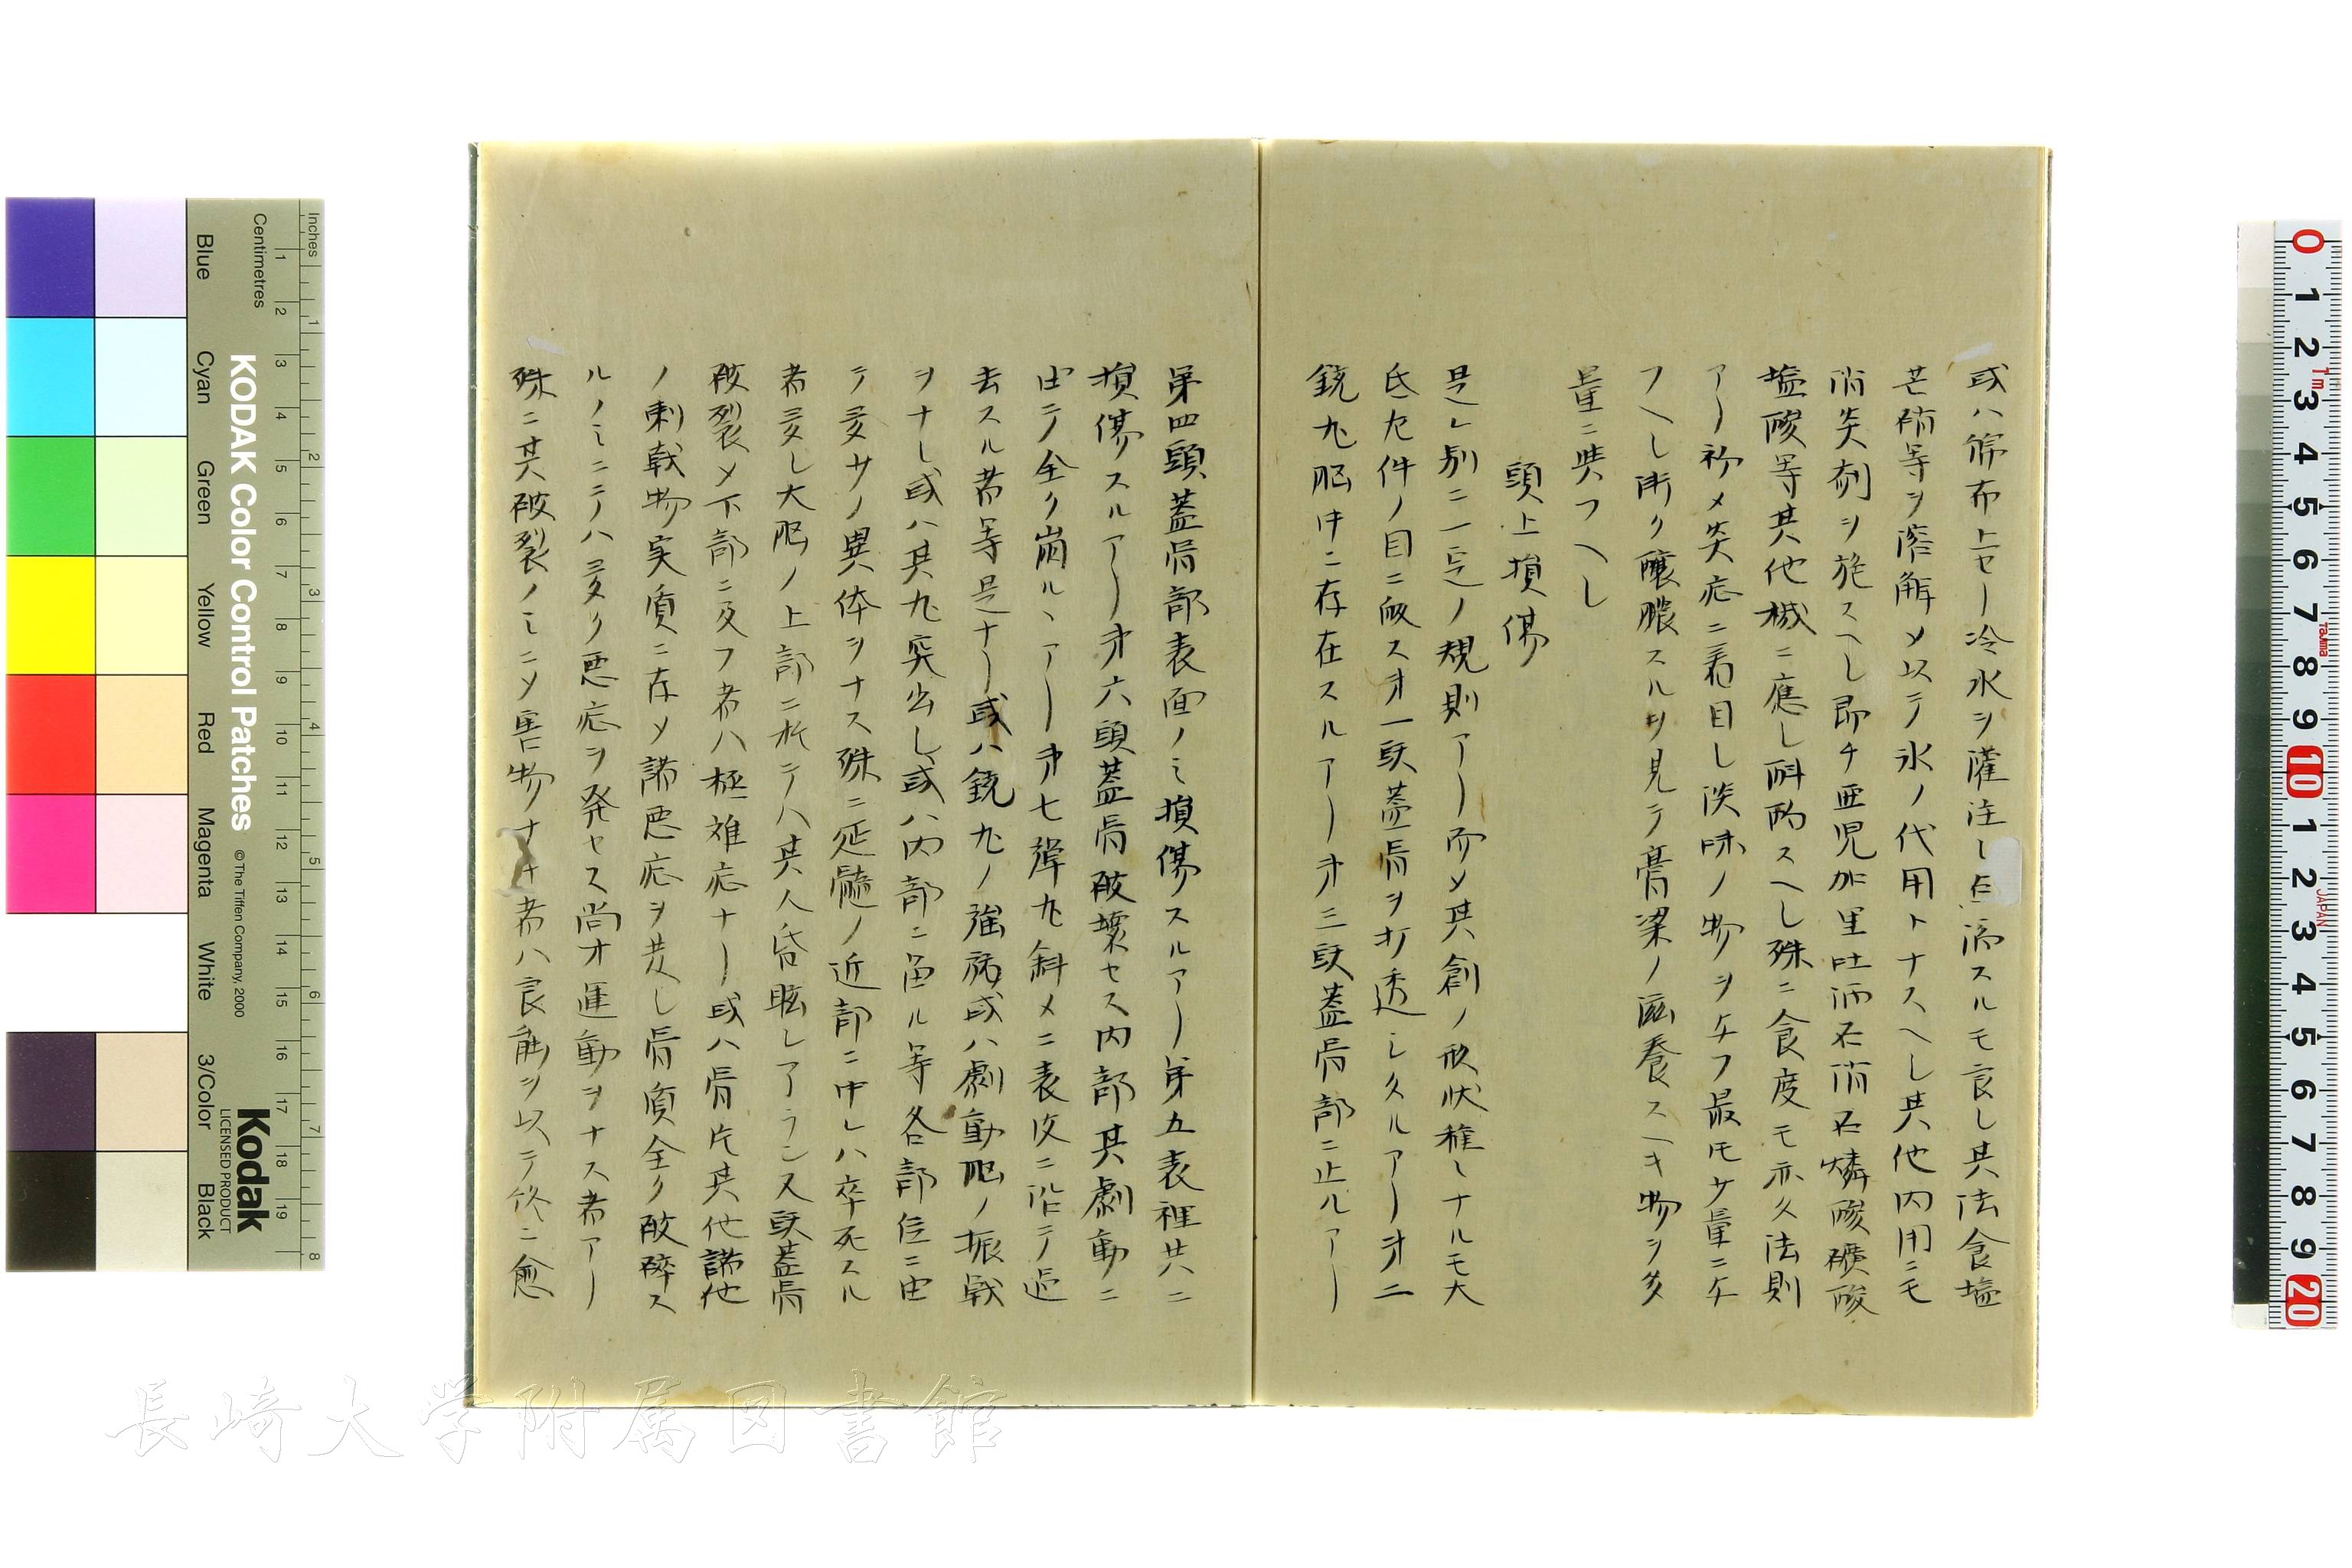 或ハ綿布上ヨリ冷水ヲ灌注シ点滴スルモ良シ其法食塩
芒硝等ヲ溶解メ以テ氷ノ代用トナスヘし其他内用ニモ
消炎剤ヲ施スヘし即チ亜児加里吐酒石消石燐酸礦酸
塩酸等其他機ニ應し斟酌スヘし殊ニ食度モ亦久法則
アリ初メ炎症ニ着目し淡味ノ物ヲ与フ最モ少量ニ与
フヘし漸ク醸膿スルヲ見テ膏粱ノ滋養スヘキ物ヲ多
量ニ與フヘし
頭上損傷
是レ別ニ一定ノ規則アリ而メ其創ノ形状種々ナルモ大
氐左件ノ目ニ皈ス第一頭蓋骨ヲ打透シ久ルアリ第二
銃丸脳中ニ存在スルアリ第三頭蓋骨部ニ止ルアリ
第四頭蓋骨部表面ノミ損傷スルアリ第五表裡共ニ
損傷スルアリ第六頭蓋骨破壊セス内部其劇動ニ
由テ全ク崩ルヽアリ第七弾丸斜メニ表皮ニ沿テ過
去スル者等是ナリ或ハ銃丸ノ強弱或ハ劇動脳ノ振戦
ヲナし或ハ其丸突出し或ハ内部ニ留ル等各部位ニ由
テ多少ノ異体ヲナス殊ニ延髄ノ近部ニ中レハ卒死スル
者多し大脳ノ上部ニ於テハ其人昏眩しアランス頭蓋骨
破裂メ下部ニ及フ者ハ極難症ナリ或ハ骨片其他諸他
ノ刺戟物実質ニ存メ諸悪症ヲ発し骨質全ク破砕ス
ルノミニテハ多ク悪症ヲ発セス尚オ運動ヲナス者アリ
殊ニ其破裂ノミニメ害物ナキ者ハ良能ヲ以テ終ニ愈
長崎大学附属図書館
KODAK Color Control Patches
© The Tiffen Company, 2000
Kodak
LICENSED PRODUCT
Inches
Centimetres
Blue
Cyan
Green
Yellow
Red
Magenta
White
3/Color
Black